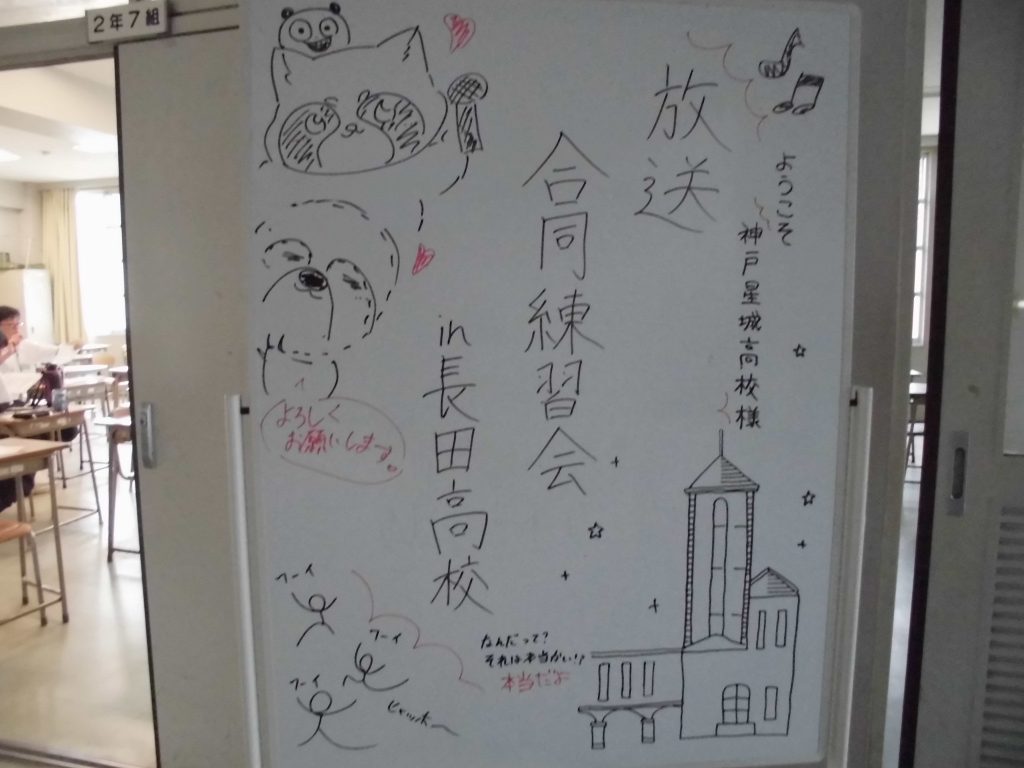 2年7組
ようこそ
神戸星城高校様
放送
合同練習会
in 長田高校
よろしく
お願いします。
フーイ
フーイ
フーイ
ヒャッホー
なんだって?
それは本当かい!?
本当だよ